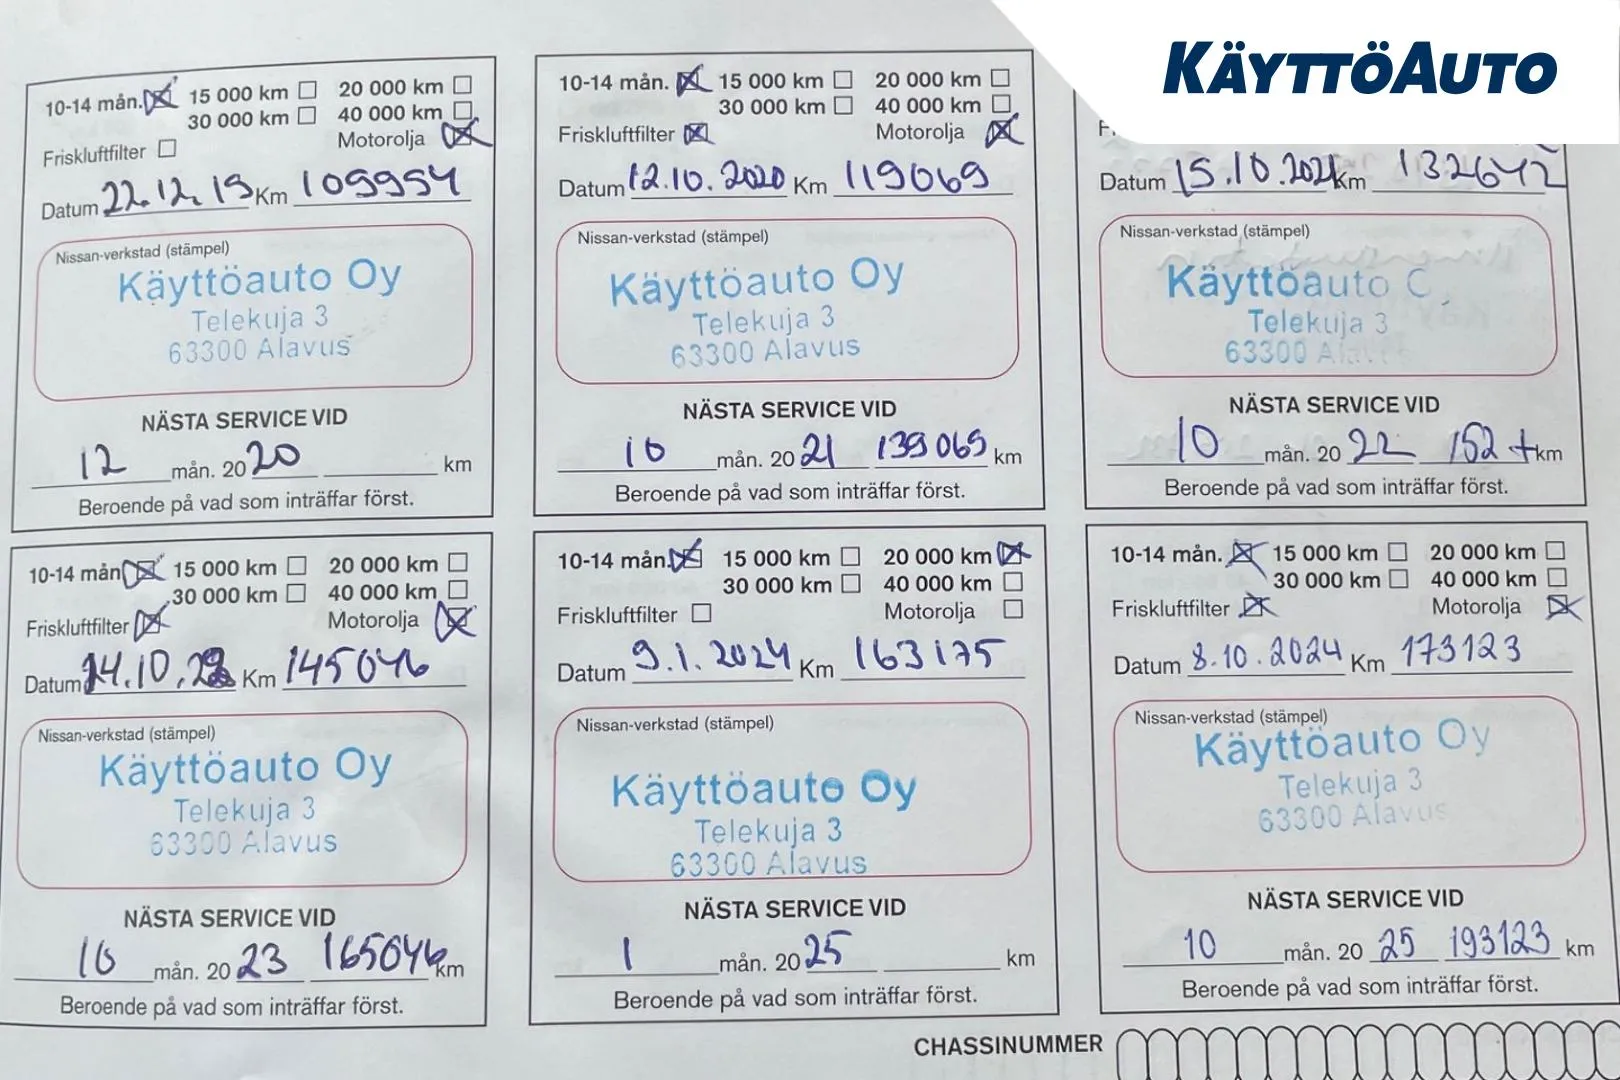 KÄYTTÖAUTO
10-14 mån. 15 000 km 20 000 km
30 000 km 40 000 km
Friskluftfilter Motorolja
Datum 22.12.19 Km 109954
Nissan-verkstad (stämpel)
Käyttöauto Oy
Telekuja 3
63300 Alavus
NÄSTA SERVICE VID
12 mån. 20 20 km
Beroende på vad som inträffar först.
10-14 mån. 15 000 km 20 000 km
30 000 km 40 000 km
Friskluftfilter Motorolja
Datum 12.10.2020 Km 119069
Nissan-verkstad (stämpel)
Käyttöauto Oy
Telekuja 3
63300 Alavus
NÄSTA SERVICE VID
10 mån. 20 21 139069 km
Beroende på vad som inträffar först.
Datum 15.10.2021 Km 132642
Nissan-verkstad (stämpel)
Käyttöauto
Telekuja 3
63300
NÄSTA SERVICE VID
10 mån. 20 22 152 + km
Beroende på vad som inträffar först.
10-14 mån 15 000 km 20 000 km
30 000 km 40 000 km
Friskluftfilter Motorolja
Datum 14.10.22 Km 145046
Nissan-verkstad (stämpel)
Käyttöauto Oy
Telekuja 3
63300 Alavus
NÄSTA SERVICE VID
10 mån. 20 23 165046 km
Beroende på vad som inträffar först.
10-14 mån. 15 000 km 20 000 km
30 000 km 40 000 km
Friskluftfilter Motorolja
Datum 9.1.2024 Km 163175
Nissan-verkstad (stämpel)
Käyttöauto Oy
Telekuja 3
63300 Alavus
NÄSTA SERVICE VID
1 mån. 20 25 km
Beroende på vad som inträffar först.
10-14 mån. 15 000 km 20 000 km
30 000 km 40 000 km
Friskluftfilter Motorolja
Datum 8.10.2024 Km 173123
Nissan-verkstad (stämpel)
Käyttöauto Oy
Telekuja 3
63300 Alavus
NÄSTA SERVICE VID
10 mån. 20 25 193123 km
Beroende på vad som inträffar först.
CHASSINUMMER